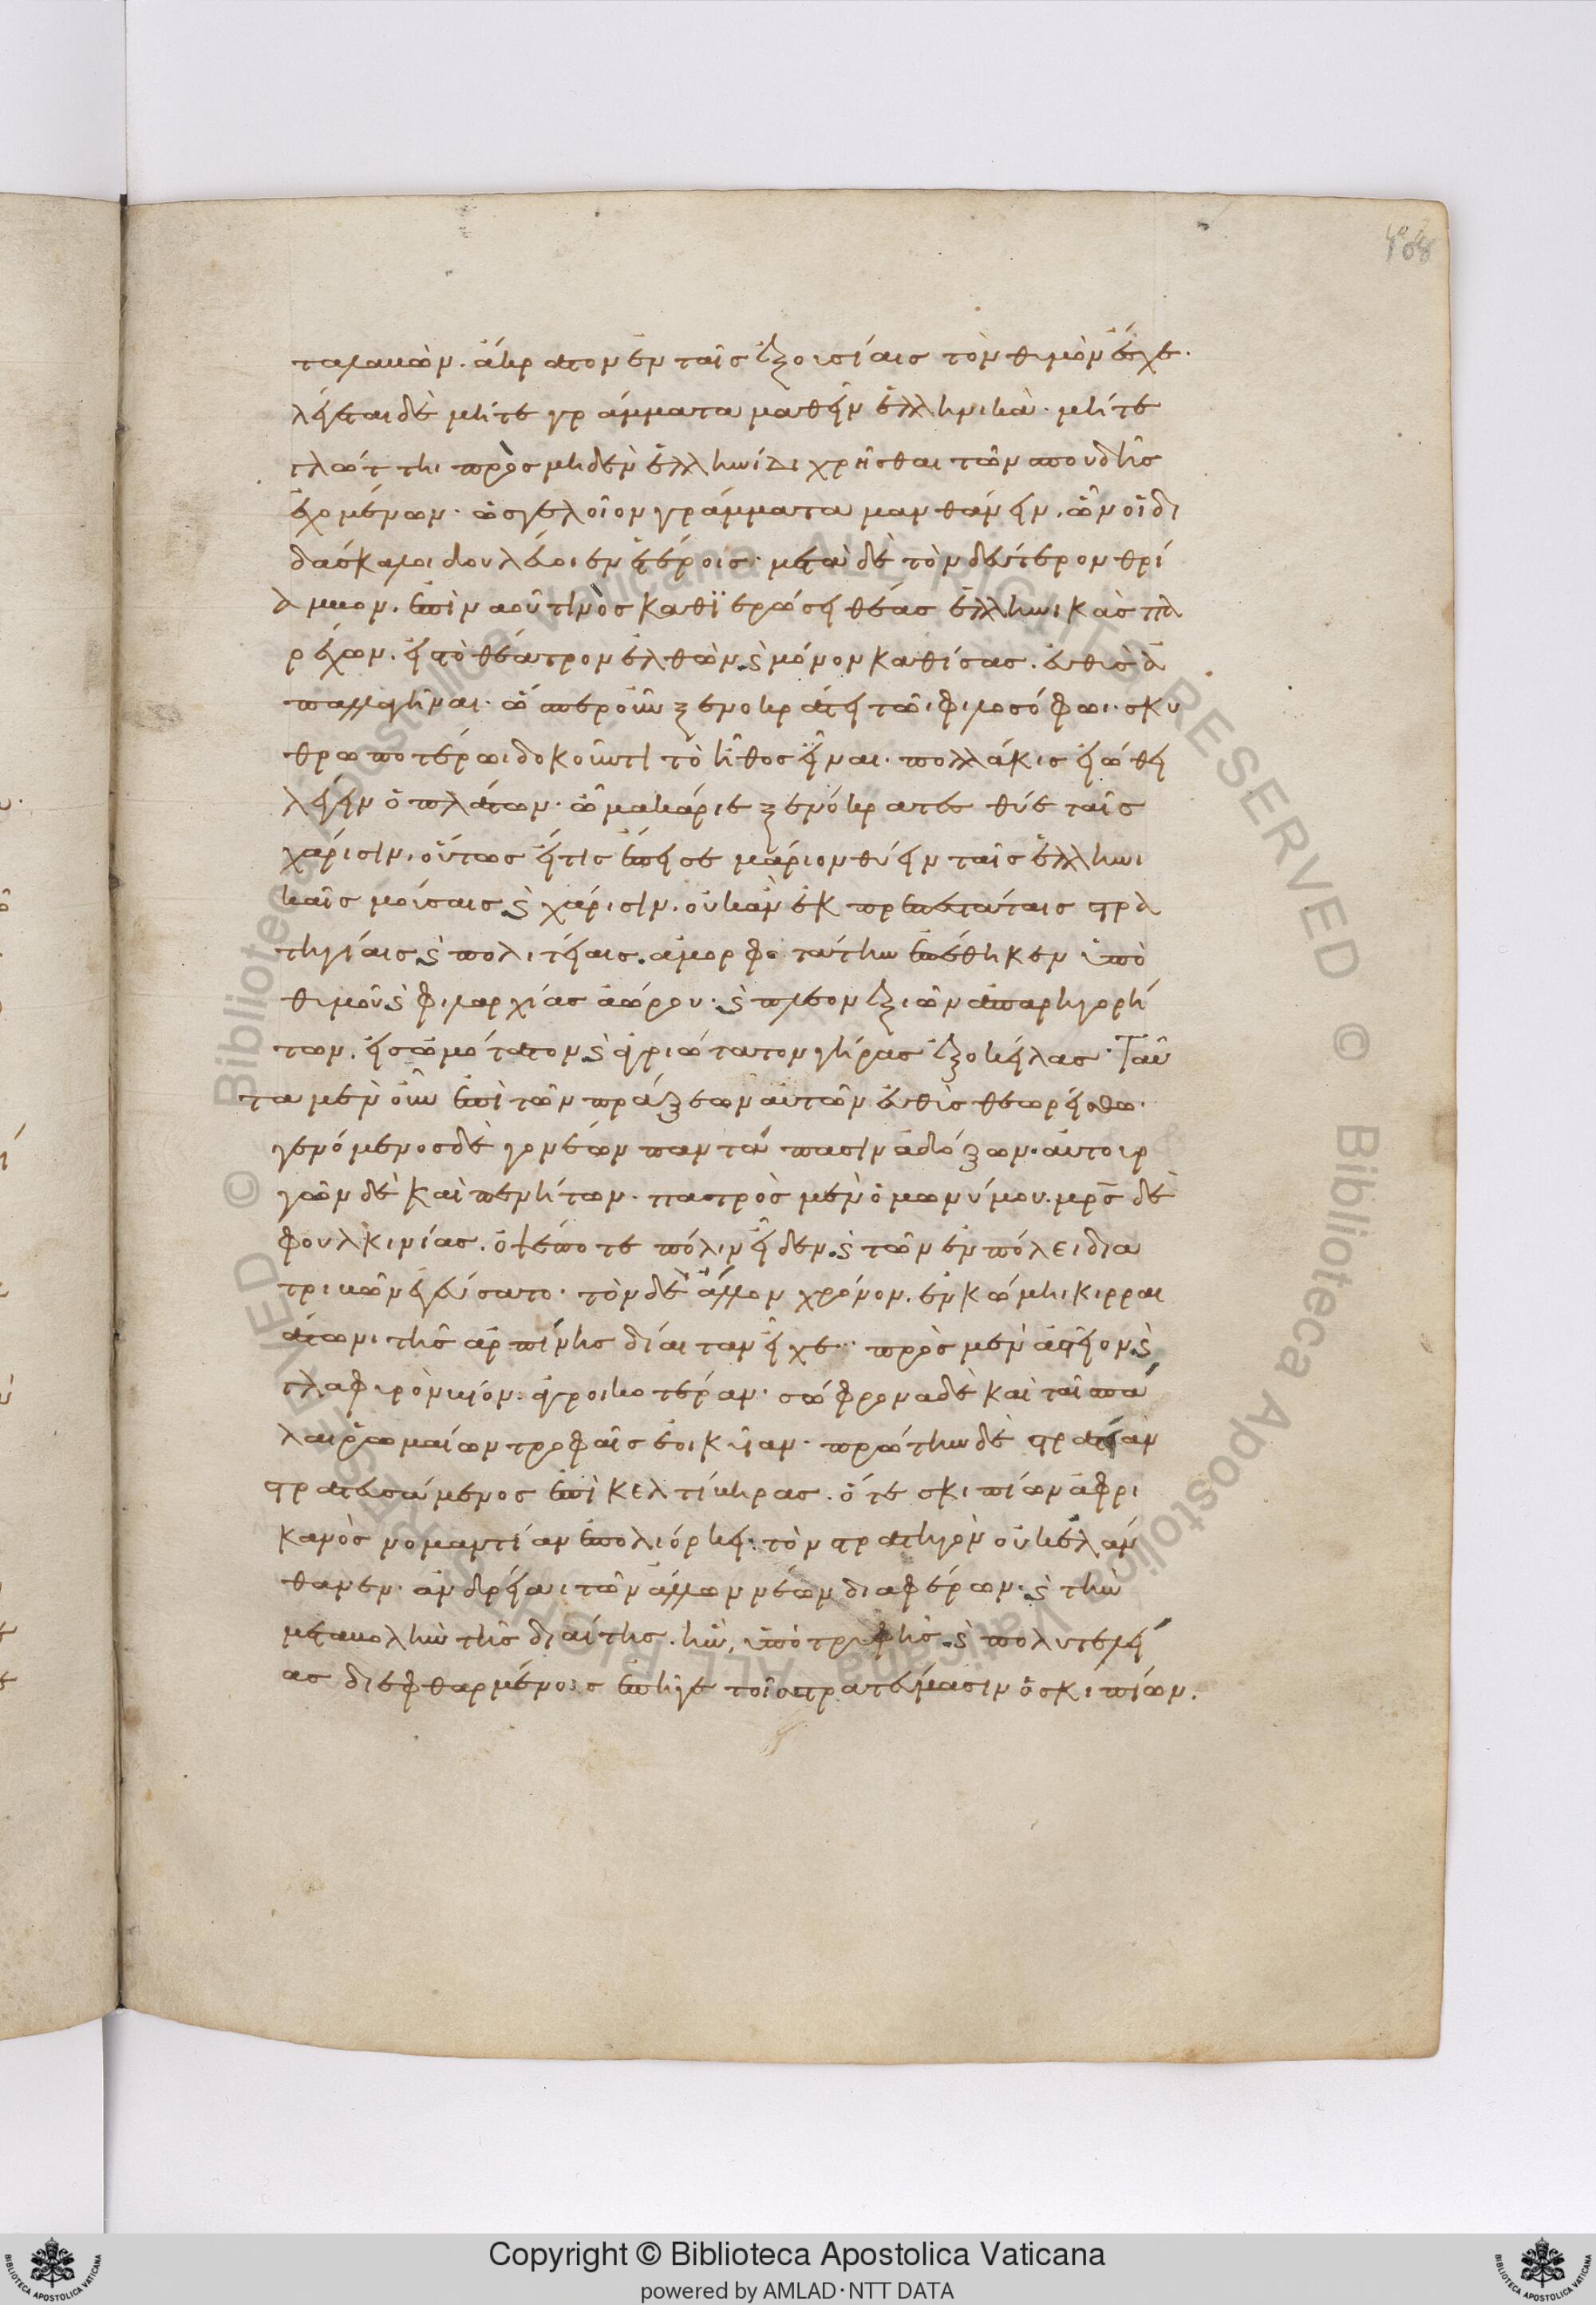 ταλαβὼν. ἄκρατον ἐν ταῖς ἐξουσίαις τὸν θυμὸν ἔσχε·
λέγεται δὲ μήτε γράμματα μαθεῖν ἑλληνικὰ· μήτε
γλώττηι πρὸς μηδὲν ἑλληνίδι χρῆσθαι τῶν σπουδῆς
ἐχομένων· ὡς γελοῖον γράμματα μανθάνειν, ὧν οἱ δι
δάσκαλοι δουλεύοιεν ἑτέροις· μετὰ δὲ τὸν δεύτερον θρί
αμβον. ἐπὶ ναοῦ τινὸς καθϊερώσει θέας ἑλληνικὰς πα
ρέχων. εἰς τὸ θέατρον ἐλθὼν καὶ μόνον καθίσας. εὐθὺς ἀ
παλλαγῆναι· ὥσπερ οὖν ξενοκράτει τῶι φιλοσόφωι· σκυ
θρωποτέρωι δοκοῦντι τὸ ἦθος εἶναι. πολλάκις εἰώθει
λέγειν ὁ πλάτων· ὦ μακάριε ξενόκρατες θύε ταῖς
χάρισιν. οὕτως εἴ τις ἔπεισε μάριον θύειν ταῖς ἑλληνι
καῖς μούσαις καὶ χάρισιν. οὐκ ἂν ἐκπρεπεστάταις στρα
τηγίαις καὶ πολιτείαις. ἀμορφο ταύτην ἐπέθηκεν ὑπὸ
θυμοῦ καὶ φιλαρχίας ἀώρου· καὶ πλεονεξιῶν ἀπαρηγορή
των. εἰς ὠμότατον καὶ ἀγριώτατον γῆρας ἐξοκείλας· Ταῦ
τα μὲν οὖν ἐπὶ τῶν πράξεων αὐτῶν εὐθὺς θεωρείσθω·
γενόμενος δὲ γονέων παντάπασιν ἀδόξων. αὐτουρ
γῶν δὲ καὶ πενήτων· πατρὸς μὲν ὁμωνύμου. μρς δὲ
φουλκινίας. ὀψέ ποτε πόλιν εἶδεν. καὶ τῶν ἐν πόλει δια
τριβῶν ἐγεύσατο· τὸν δὲ ἄλλον χρόνον. ἐν κώμηι κιρραι
άτωνι τῆς ἀρπίνης δίαιταν εἶχε· πρὸς μὲν ἀστεῖον καὶ
γλαφυρὸν βίον. ἀγροικοτέραν· σώφρονα δὲ καὶ ταῖς πά
λαι ῥωμαίων τροφαῖς ἐοικυῖαν· πρώτην δὲ στρατείαν
στρατευσάμενος ἐπὶ κελτίβηρας. ὅτε σκιπίων ἀφρι
κανὸς νομαντίαν ἐπολιόρκει· τὸν στρατηγὸν οὐκ ἐλάν
θανεν· ἀνδρείαι τῶν ἄλλων νέων διαφέρων· καὶ τὴν
μεταβολὴν τῆς διαίτης. ἣν, ὑπὸ τρυφῆς. καὶ πολυτελεί
ας διεφθαρμένοις ἐπῆγε τοῖς στρατεύμασιν ὁ σκιπίων.